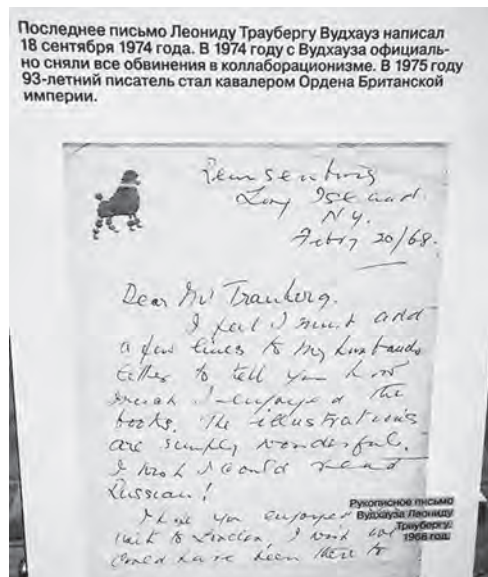 Последнее письмо Леониду Траубергу Вудхауз написал
18 сентября 1974 года. В 1974 году с Вудхауза официаль-
но сняли все обвинения в коллаборационизме. В 1975 году
93-летний писатель стал кавалером Ордена Британской
империи.
Remsenburg
Long Island.
NY.
20/68.
Dear Mr Trauberg.
I feel I must add
a few lines to my husbands
letter to tell you how
much I enjoyed the
books. The illustrations
are simply wonderful.
I wish I could read
Russian!
I hope you enjoyed
visit to London, I wish we
could have been there to
Рукописное письмо
Вудхауза Леониду
Траубергу.
1968 год.